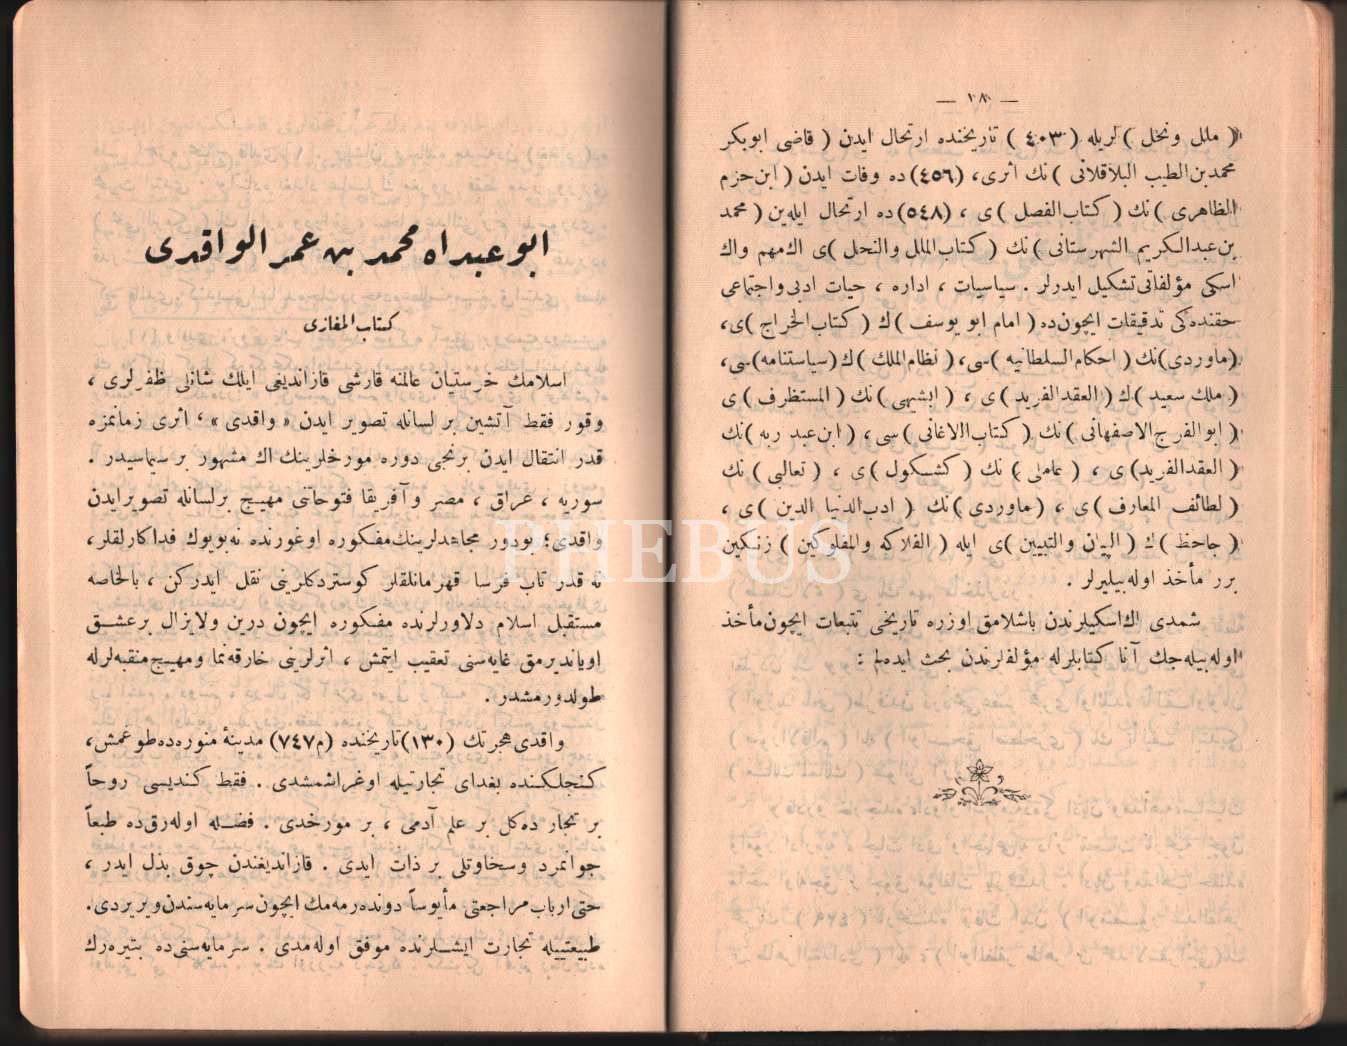 — ١٨ —
( ملل ونحل ) لريله ( ٤٠٣ ) تاريخنده ارتحال ايدن ( قاضى ابوبكر
محمدبن الطيب الباقلانى ) نك اثرى، (٤٥٦) ده وفات ايدن ( ابن حزم
الظاهرى ) نك ( كتاب الفصل ) ى ، (٥٤٨) ده ارتحال ايله ين ( محمد
بن عبدالكريم الشهرستانى ) نك ( كتاب الملل والنحل ) ى اك مهم واك
اسكى مؤلفاتى تشكيل ايدرلر . سياسيات ، اداره ، حيات ادبى واجتماعى
حقنده كى تدقيقات ايچون ده ( امام ابو يوسف ) ك ( كتاب الخراج ) ى،
(ماوردى) نك ( احكام السلطانيه ) سى، ( نظام الملك ) ك (سياستنامه) سى،
( ملك سعيد ) ك ( العقد الفريد ) ى ، ( ابشيهى ) نك ( المستظرف ) ى
( ابو الفرج الاصفهانى ) نك ( كتاب الاغانى ) سى، ( ابن عبد ربه ) نك
( العقد الفريد) ى ، ( عاملى ) نك ( كشكول ) ى ، ( ثعالبى ) نك
( لطائف المعارف ) ى ، ( ماوردى ) نك ( ادب الدنيا الدين ) ى ،
( جاحظ ) ك ( البيان والتبيين ) ى ايله ( الفلاكه والمفلوكين ) زنكين
برر مأخذ اوله بيليرلر .
شمدى اك اسكيلرندن باشلامق اوزره تاريخى تتبعات ايچون مأخذ
اوله بيله جك آنا كتابلرله مؤلفلرندن بحث ايده لم :
ابو عبداه محمد بن عمر الواقدى
كتاب المغازى
اسلامك خرستيان عالمنه قارشى قازانديغى ايلك شانلى ظفرلرى ،
وقور فقط آتشين بر لسانله تصوير ايدن « واقدى » ، اثرى زمانمزه
قدر انتقال ايدن برنجى دوره مورخلرينك اك مشهور بر سيماسيدر .
سوريه ، عراق ، مصر و آفريقا فتوحاتنى مهيج برلسانله تصوير ايدن
واقدى؛ بودور مجاهدلرينك مفكوره اوغورنده نه بويوك فداكارلقلر،
نه قدر تاب فرسا قهرمانلقلر كوستردكلرينى نقل ايدركن ، بالخاصه
مستقبل اسلام دلاورلرنده مفكوره ايچون درين ولايزال برعشق
اوياندیرمق غايه سنى تعقيب ايتمش ، اثرلرينى خارقه نما ومهيج منقبه لرله
طولدورمشدر .
واقدى هجرتك (١٣٠) تاريخنده (م ٧٤٧) مدينهٔ منوره ده طوغمش،
كنجلكنده بغداى تجارتيله اوغراشمشدى . فقط كنديسى روحاً
بر تجار ده كل بر علم آدمى ، بر مورخدى . فضله اوله رق ده طبعاً
جوانمرد وسخاوتلى بر ذات ايدى . قازانديغندن چوق بذل ايدر ،
حتى ارباب مراجعتى مأيوساً دوندەرمه مك ايچون سرمايه سندن ويريردى.
طبيعتييله تجارت ايشلرنده موفق اوله مدى . سرمايه سنى ده بتيره رك
PHEBUS